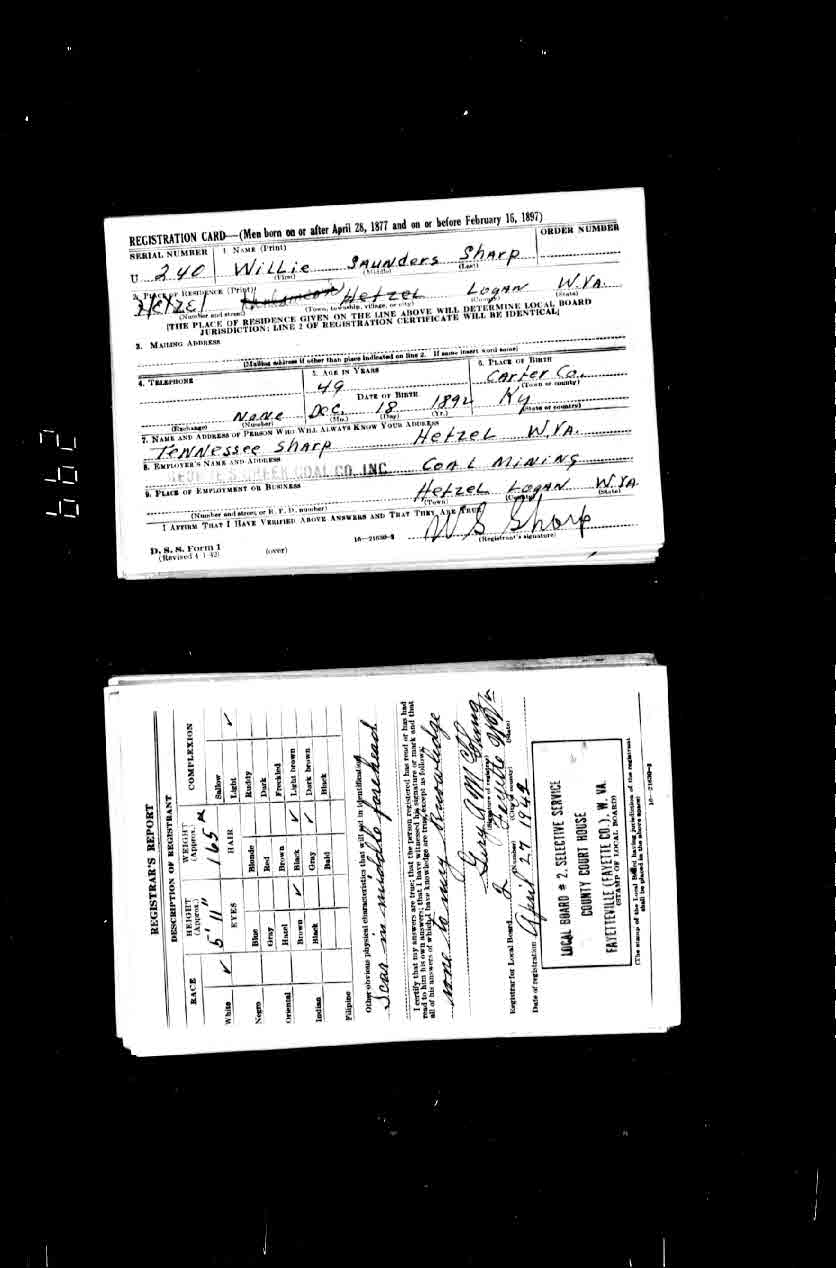 REGISTRATION CARD—(Men born on or after April 28, 1877 and on or before February 16, 1897)
SERIAL NUMBER 1. NAME (Print) ORDER NUMBER
U 240 Willie Saunders Sharp
(First) (Middle) (Last)
2. PLACE OF RESIDENCE (Print)
Hetzel Hetzel Logan W.VA.
(Number and street) (Town, township, village, or city) (County) (State)
[THE PLACE OF RESIDENCE GIVEN ON THE LINE ABOVE WILL DETERMINE LOCAL BOARD
JURISDICTION; LINE 2 OF REGISTRATION CERTIFICATE WILL BE IDENTICAL]
3. MAILING ADDRESS
(Mailing address if other than place indicated on line 2. If same insert word same)
4. TELEPHONE 5. AGE IN YEARS 6. PLACE OF BIRTH
49 Carter Co.
(Town or county)
DATE OF BIRTH
None Dec. 18 1892 Ky
(Exchange) (Number) (Mo.) (Day) (Yr.) (State or country)
7. NAME AND ADDRESS OF PERSON WHO WILL ALWAYS KNOW YOUR ADDRESS
Tennessee Sharp Hetzel W.VA.
8. EMPLOYER'S NAME AND ADDRESS
CREEK COAL CO. INC. Coal Mining
9. PLACE OF EMPLOYMENT OR BUSINESS
Hetzel Logan W.VA
(Number and street or R. F. D. number) (Town) (County) (State)
I AFFIRM THAT I HAVE VERIFIED ABOVE ANSWERS AND THAT THEY ARE TRUE.
W S Sharp
D. S. S. Form 1 16—21630-2 (Registrant's signature)
(Revised 4-1-42) (over)
REGISTRAR'S REPORT
DESCRIPTION OF REGISTRANT
RACE HEIGHT (Approx.) WEIGHT (Approx.) COMPLEXION
5' 11" 165
White ✓ EYES HAIR Sallow
Light ✓
Negro Blue Blonde Ruddy
Gray Red Dark
Oriental Hazel Brown Freckled
Brown ✓ Black ✓ Light brown
Indian Black Gray ✓ Dark brown
Bald Black
Filipino
Other obvious physical characteristics that will aid in identification
Scar in middle forehead
I certify that my answers are true; that the person registered has read or has had
read to him his own answers; that I have witnessed his signature or mark and that
all of his answers of which I have knowledge are true, except as follows:
none to my knowledge
(Signature of registrar)
Registrar for Local Board 2 Fayette
(Number) (City or county) (State)
Date of registration April 27 1942
LOCAL BOARD # 2. SELECTIVE SERVICE
COUNTY COURT HOUSE
FAYETTEVILLE (FAYETTE CO.), W. VA.
(STAMP OF LOCAL BOARD)
(The stamp of the Local Board having jurisdiction of the registrant
shall be placed in the above space)
16—21630-2